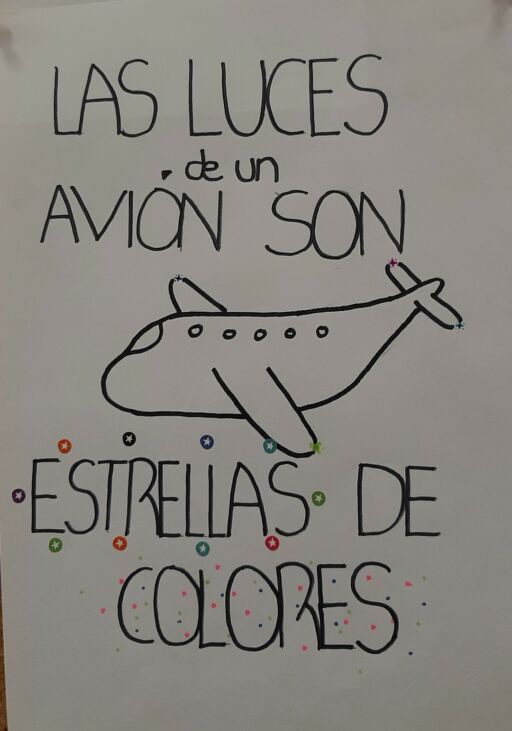 LAS LUCES
de un
AVIÓN SON
ESTRELLAS DE
COLORES